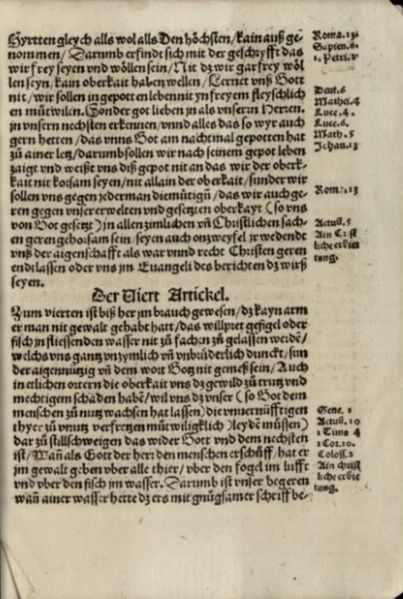 Hyrtten gleych alls wol alls Den höchsten/kain auß ge-
nommen/Darumb erfindt sich mit der geschryfft das
wir frey seyen und wöllen sein/Nit dz wir gar frey wöl
len seyn/kain oberkait haben wellen/Lernet unß Gott
nit/wir sollen in gepotten leben nit yn freyem fleyschlich
en mütwilen. Sonder got lieben jn als unserrn Herren.
jn unsern nechsten erkennen/unnd alles das so wyr auch
gern hetten/das unns Got am nachtmal gepotten hat
zu ainer letz/darumb sollen wir nach seinem gepot leben
zaigt und weißt uns diß gepot nit an das wir der oberk-
kait nit korsam seyen/nit allain der oberkait/sunder wir
sollen uns gegen jederman diemütigen/das wir auch ge-
ren gegen unser erwelten und gesetzten oberkayt (so uns
von Got gesetzt) jn allen zimlichen uñ Christlichen sach-
en geren gehorsam sein. seyen auch on zweyfel jr wedendt
unß der aigenschafft als war unnd recht Christen geren
endtlassen oder uns jm Euangeli des berichten dz wirß
seyen.
Der Viert Artickel.
Zum vierten ist biß her jm brauch gewesen/dz kayn arm
er man nit gewalt gehabt hatt/das willpret gefigel oder
fisch jn fliessenden wasser nit zu fachen zu gelassen werdē/
welchs uns gantz unzymlich uñ unbrüderlich dunckt/sun
der aigennützig uñ dem wort Gotz nit gemeß sein/Auch
in etlichen ortern die oberkait uns dz gewild zu trutz und
mechtigem schaden habē/wil uns dz unser (so Got dem
menschen zu nutz wachsen hat lassen) die unuernüfftigen
thyer zu unutz verfretzen mütwiligklich/leydē müssen)
dar zu stillschweigen das wider Gott und dem nechsten
ist/Wañ als Gott der her den menschen erschuff/hat er
jm gewalt geben uber alle thier/uber den fogel im lufft
und uber den fisch jm wasser. Darumb ist unser begeren
wañ ainer wasser hette dz ers mit gnügsamer schrifft be-
Roma. 13.
Sapien. 6.
1. Petri. 2
Deut. 6
Mathe. 4
Luce. 4.
Luce. 6.
Math. 5
Johan. 13
Rom. 13
Actuū. 5
Ain Crist
liche erbie
tung.
Gene. 1
Actuū. 10
1 Timo 4
1 Cor. 10.
Coloss. 2
Ain christ
liche erbie
tung.